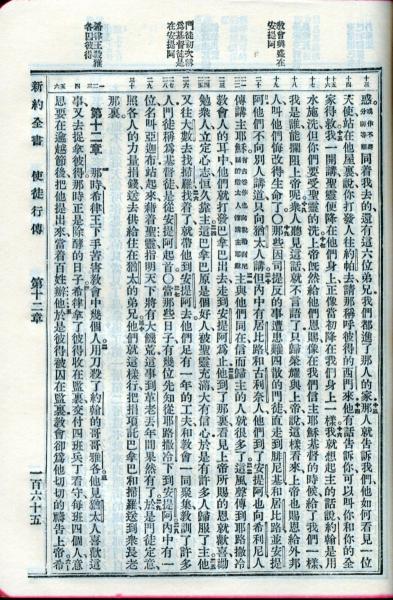 教會興盛在安提阿
門徒初次稱爲基督徒是在安提阿
希律王殺雅各囚彼得
惑同着我去的還有這六位弟兄我們都進了那人的家那人就告訴我們他如何看見一位
天使站在他屋裏說你打發人往約帕去請那稱呼彼得的西門來他有話告訴你可以叫你和你的全
家得救我一開講聖靈便降在他們身上正像當初降在我們身上一樣我就想起主的話說約翰是用
水施洗但你們要受聖靈的洗上帝旣然給他們恩賜像在我們信主耶穌基督的時候給了我們一樣
我是誰能攔阻上帝呢衆人聽見這話就不言語了只歸榮耀與上帝說這樣看來上帝也賜恩給外邦
人叫他們悔改得生命了〇那些因司提反的事遭患難四散的門徒直走到腓尼基和居比路並安提
阿他們不向別人講道只向猶太人講但內中有居比路和古利奈人他們到了安提阿也向希利尼人
傳講主耶穌主與他們同在信而歸主的人就很多了這風聲傳到耶路撒冷
教會人的耳中他們就打發巴拿巴出去走到安提阿爲止他到了那裏看見上帝所賜的恩就歡喜勸
勉衆人立定心志恆久靠主這巴拿巴原是個好人被聖靈充滿大有信心於是有許多人歸服了主他
又往大數去找掃羅找着了就帶他到安提阿去他們足有一年的工夫和教會一同聚集教訓了許多
人門徒稱爲基督徒是從安提阿起首〇當那些日子有幾位先知從耶路撒冷下到安提阿內中有一
位名叫亞迦布站起來藉着聖靈指明天下將有大饑荒這事到革老丟年間果然有了於是門徒定意
照各人的力量捐錢送去供給住在猶太的弟兄他們就這樣行把捐項託巴拿巴和掃羅送到衆長老
那裏
第十二章 那時希律王下手苦害敎會中幾個人用刀殺了約翰的哥哥雅各他見猶太人喜歡這
事又去捉拿彼得那時正是除酵的日子希律拿了彼得收在監裏交付四班兵丁看守每班四個人意
思要在逾越節後把他提出來當着百姓辦他於是彼得被囚在監裏教會卻爲他切切的禱告上帝希
新約全書 使徒行傳 第十二章 一百六十五